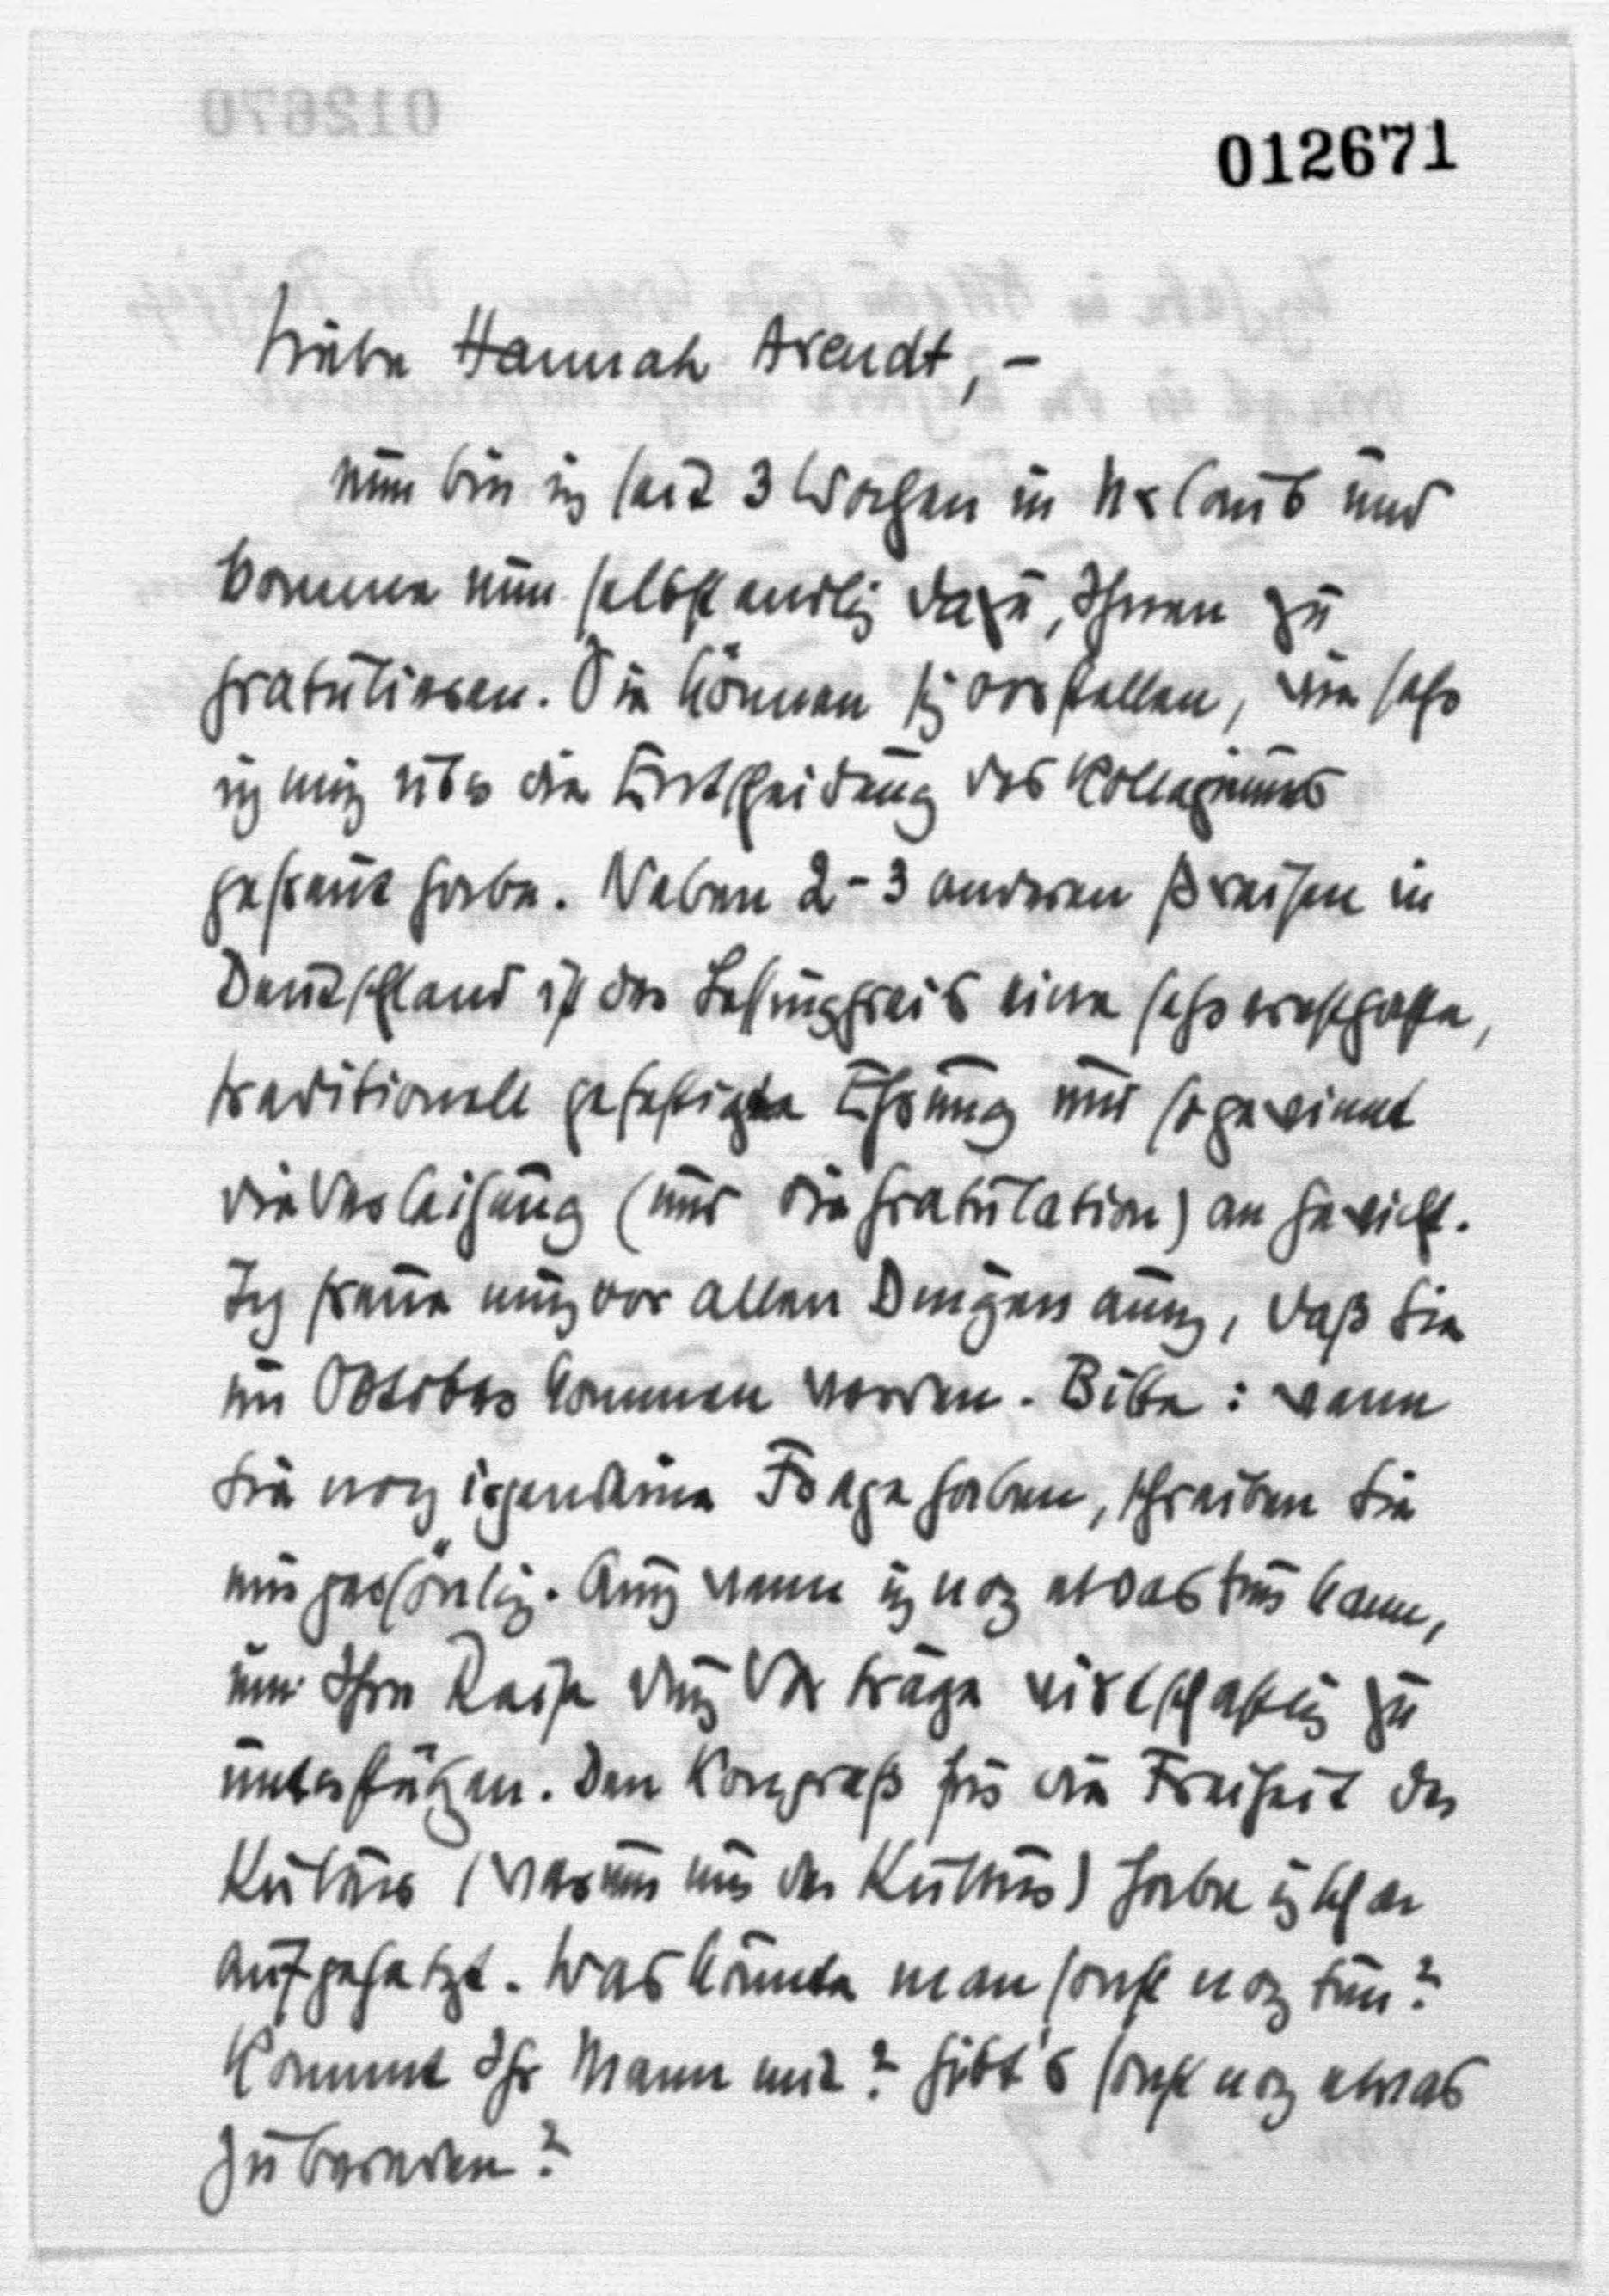 012671
Liebe Hannah Arendt, –
nun bin ich seit 3 Wochen in Urlaub und
komme nun selbst endlich dazu, Ihnen zu
gratulieren. Sie können sich vorstellen, wie sehr
ich mich über die Entscheidung des Kollegiums
gefreut habe. Neben 2-3 anderen Preisen in
Deutschland ist der Lessingpreis eine sehr ernsthafte,
traditionell gefestigte Ehrung und so gewinnt
die Verleihung (und die Gratulation) an Gewicht.
Ich freue mich vor allen Dingen auch, daß Sie
im Oktober kommen werden. Bitte: wenn
Sie noch irgendeine Frage haben, schreiben Sie
mir persönlich. Auch wenn ich noch etwas tun kann,
um Ihre Reise durch Vorträge wirtschaftlich zu
unterstützen. Den Kongreß für die Freiheit der
Kultur (warum nur der Kultur) habe ich schon
aufgesetzt. Was könnte man sonst noch tun?
Kommt Ihr Mann mit? Gibt's sonst noch etwas
zu bereden?